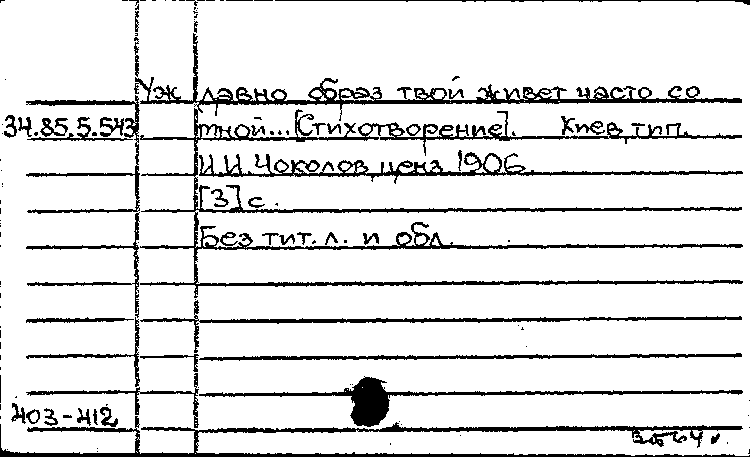 Уж давно образ твой живет часто со
34.85.5.543. мной...[Стихотворение]. Киев, тип.
И.И.Чоколов, ценз. 1906.
[3] с.
Без тит. л. и обл.
403-412